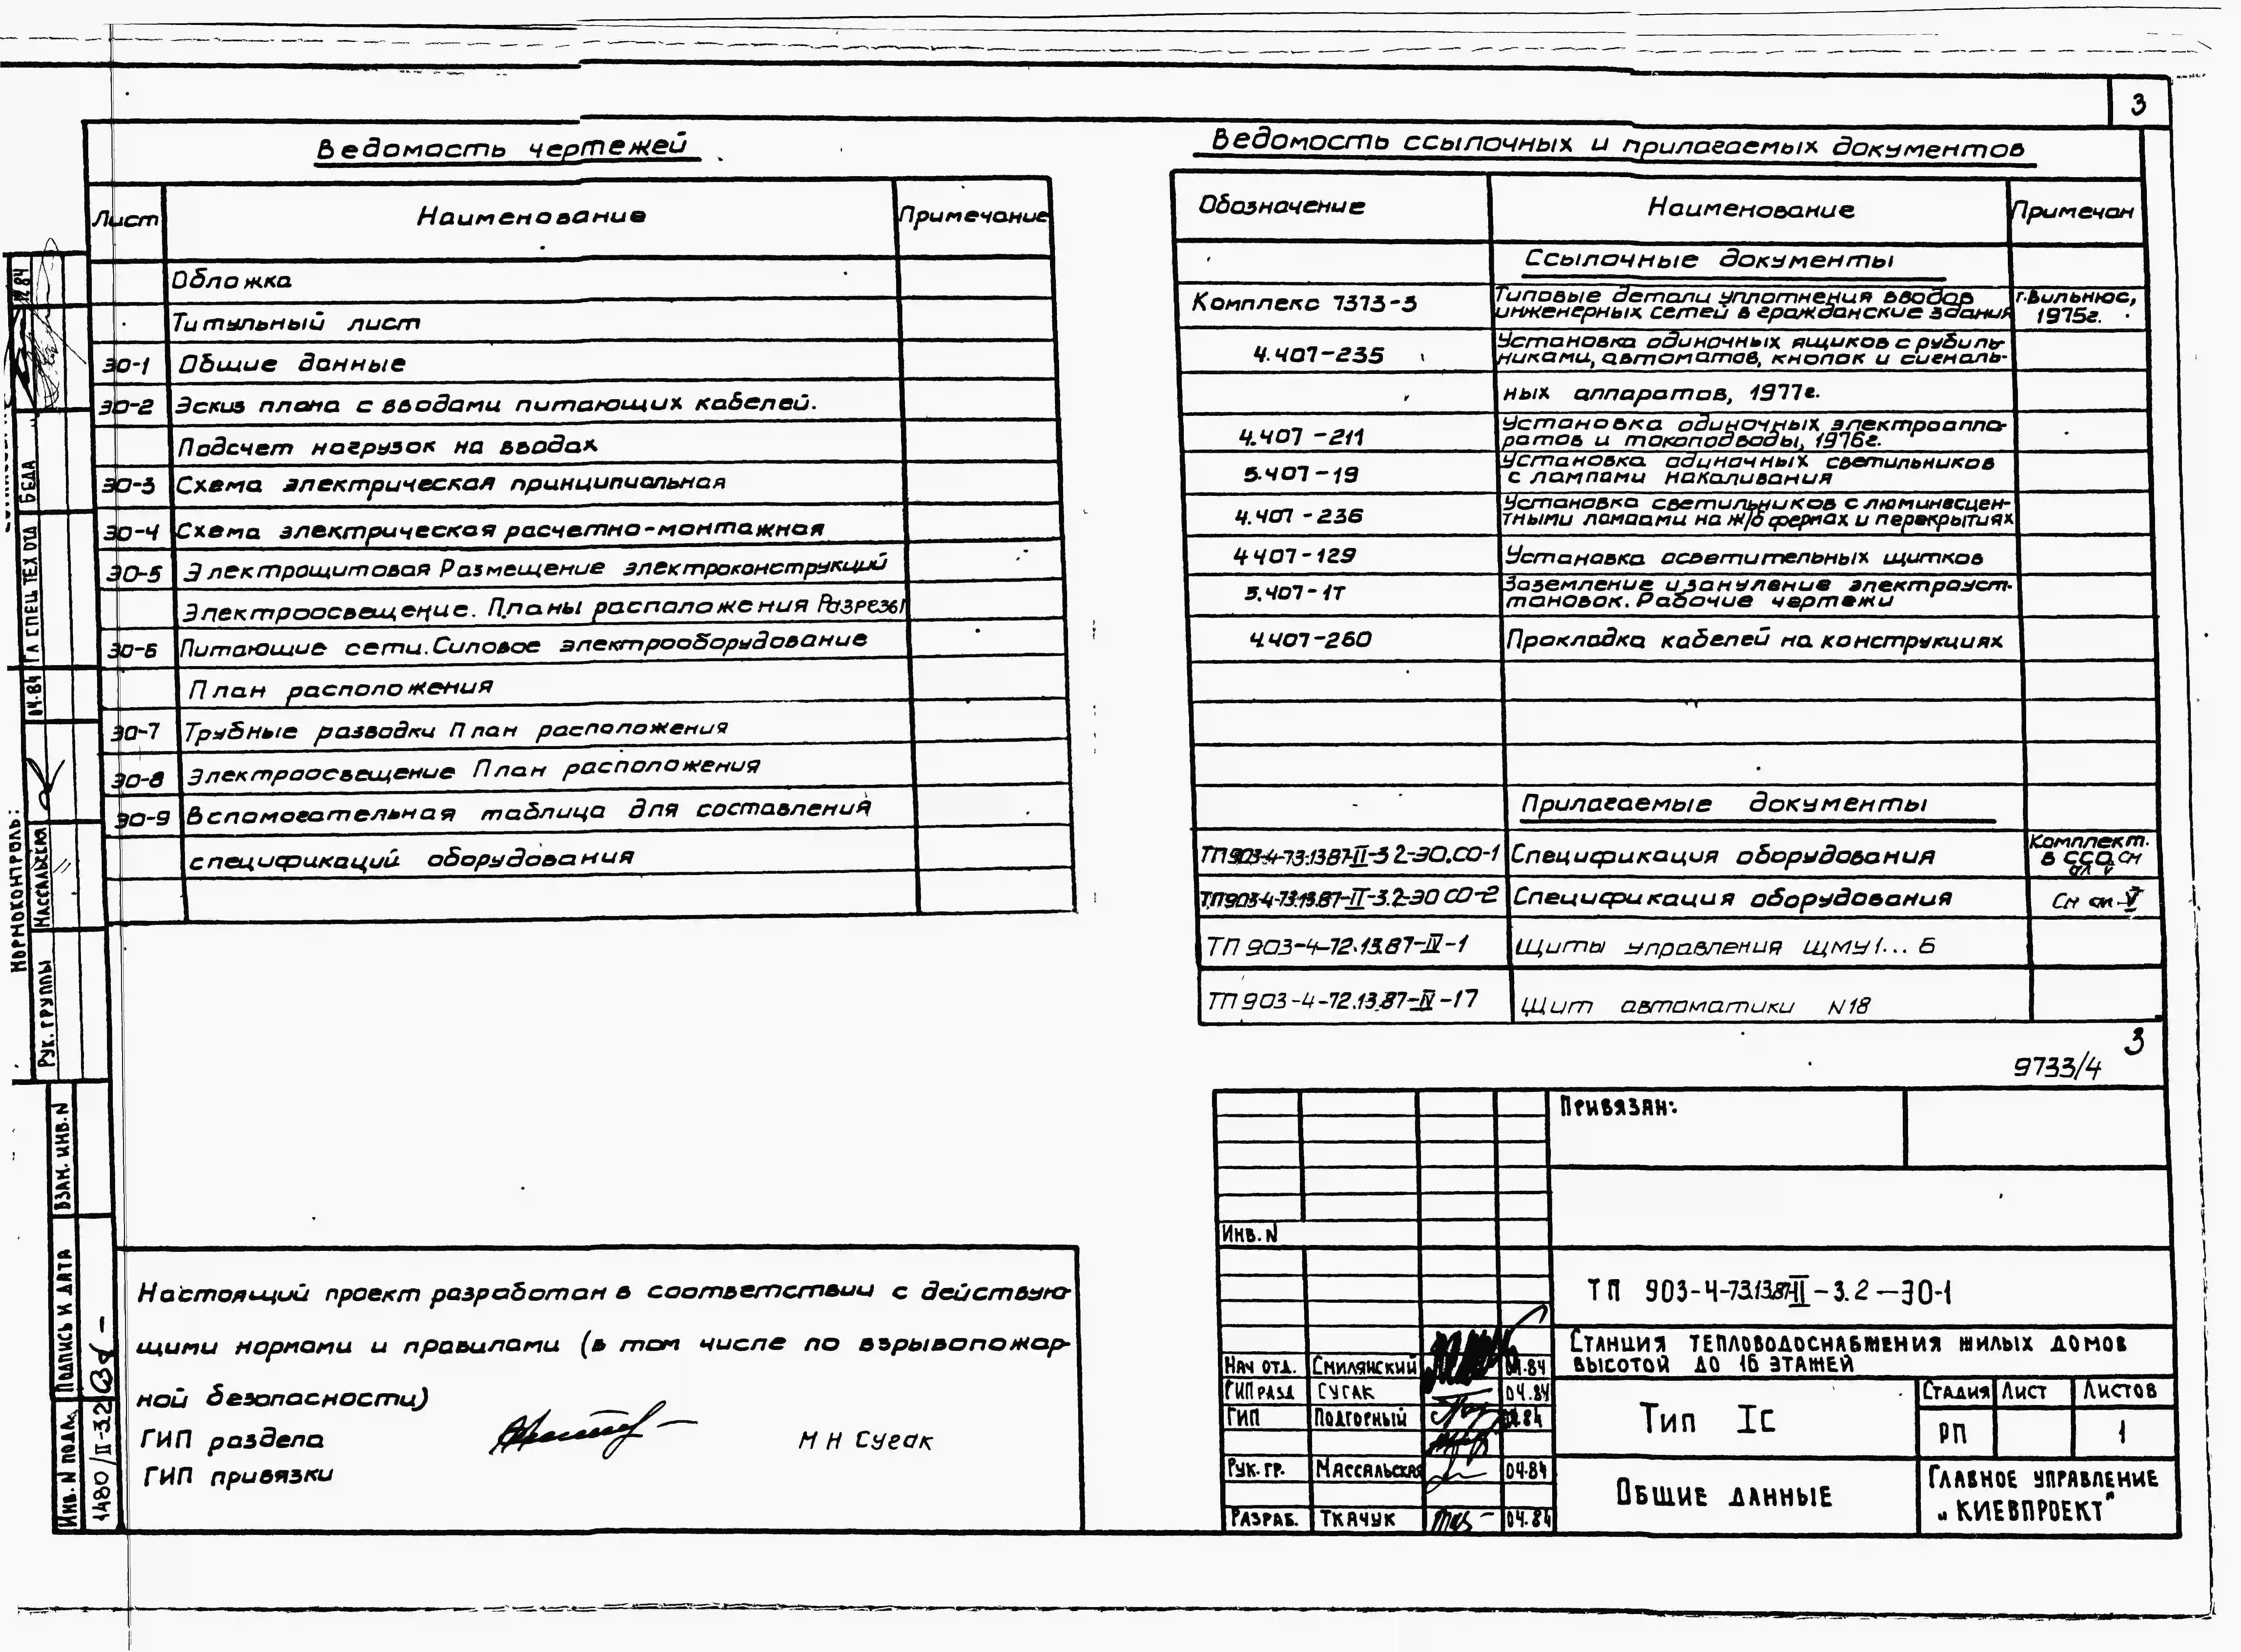 3
Ведомость чертежей
Лист Наименование Примечание
Обложка
Титульный лист
ЭО-1 Общие данные
ЭО-2 Эскиз плана с вводами питающих кабелей.
Подсчет нагрузок на вводах
ЭО-3 Схема электрическая принципиальная
ЭО-4 Схема электрическая расчетно-монтажная
ЭО-5 Электрощитовая Размещение электроконструкций
Электроосвещение. Планы расположения Разрезы
ЭО-6 Питающие сети. Силовое электрооборудование
План расположения
ЭО-7 Трубные разводки План расположения
ЭО-8 Электроосвещение План расположения
ЭО-9 Вспомогательная таблица для составления
спецификаций оборудования
Ведомость ссылочных и прилагаемых документов
Обозначение Наименование Примечан
Ссылочные документы
Комплекс 7373-3 Типовые детали уплотнения вводов г.Вильнюс,
инженерных сетей в гражданские здания 1975г.
4.407-235 Установка одиночных ящиков с рубиль-
никами, автоматов, кнопок и сигналь-
ных аппаратов, 1977г.
4.407-211 Установка одиночных электроаппа-
ратов и токоподводы, 1976г.
5.407-19 Установка одиночных светильников
с лампами накаливания
4.407-236 Установка светильников с люминесцен-
тными лампами на ж/б фермах и перекрытиях
4407-129 Установка осветительных щитков
Заземление и зануление электроуст-
тановок. Рабочие чертежи
4.407-260 Прокладка кабелей на конструкциях
Прилагаемые документы
ТП 903-4-73.13.87-II-3.2-ЭО.СО-1 Спецификация оборудования Комплект.
в ССО см
ТП 903-4-73.13.87-II-3.2-ЭО СО-2 Спецификация оборудования См ал. V
ТП 903-4-72.13.87-IV-1 Щиты управления ЩМУ1...6
ТП 903-4-72.13.87-IV-17 Щит автоматики N18
3
9733/4
Настоящий проект разработан в соответствии с действую-
щими нормами и правилами (в том числе по взрывопожар-
ной безопасности)
ГИП раздела М Н Сугак
ГИП привязки
Привязан:
Инв. N
ТП 903-4-73.13.87-II-3.2-ЭО-1
Станция тепловодоснабжения жилых домов
высотой до 16 этажей
Нач отд. Смилянский 04.84
ГИП разд Сугак 04.84
ГИП Подгорный 04.84
Рук. гр. Массальская 04.84
Разраб. Ткачук 04.84
Тип Iс
Стадия Лист Листов
РП 1
Общие данные
Главное управление
"Киевпроект"
Нормоконтроль:
Гл спец тех отд Беда 12.84
Рук. группы Массальская 04.84
Взам. инв. N
Подпись и дата
Инв. N подл. 1480/II-3.2